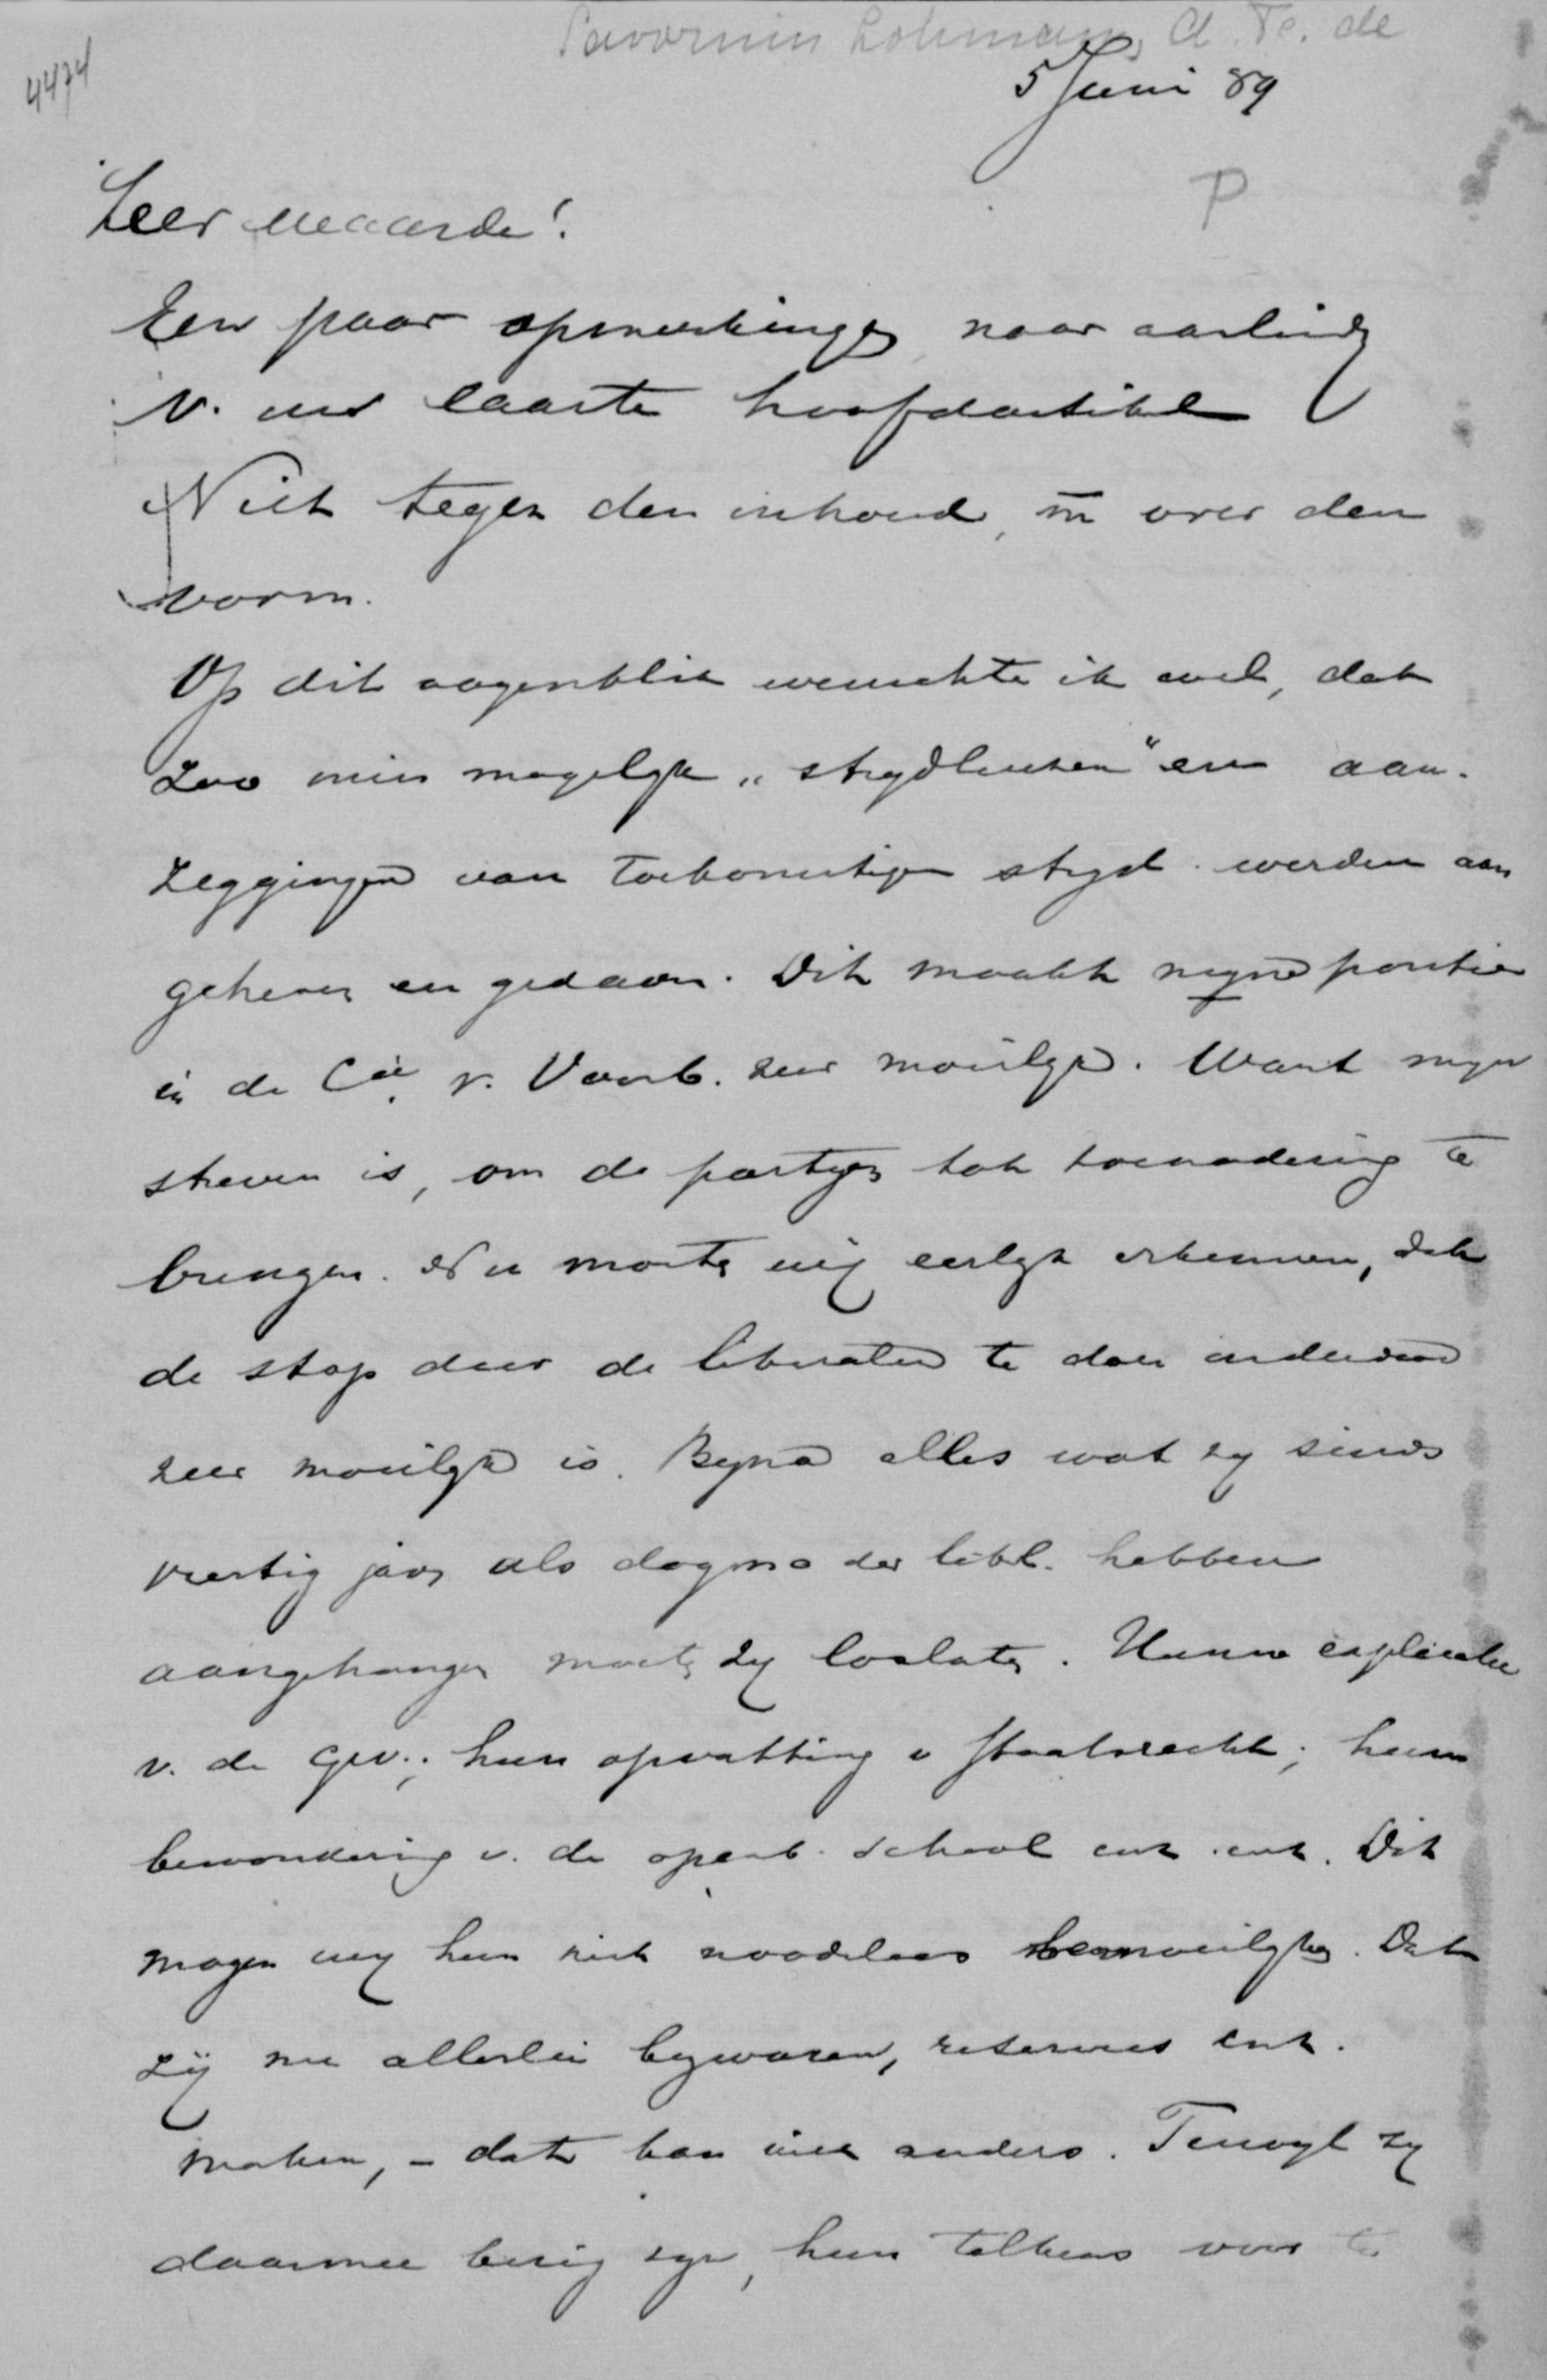 Savornin Lohman, A. F. de
4474
5 Juni 89
P
Zeer waarde!
Een paar opmerkingen naar aanleidg
v. uw laatste hoofdartikel
Niet tegen den inhoud, m over den
vorm.
Op dit oogenblik wenschte ik wel, dat
zoo min mogelyk „strydleuzen" en aan-
zeggingen van toekomstigen stryd werden aan
geheven en gedaan. Dit maakt myne positie
in de Cie v. Voorb. zeer moeilyk. Want myn
streven is, om de partyen tot toenadering te
brengen. Nu moeten wij eerlyk erkennen, dat
de stap door de liberalen te doen inderdaad
zeer moeilyk is. Byna alles wat zy sinds
veertig jaar als dogma der libl. hebben
aangehangen moeten zy loslaten. Hunne explicatie
v. de Gw.; hun opvatting v staatsrecht; hun
bewondering v. de openb. school enz. enz. Dit
mogen wy hun niet noodeloos bemoeilyken. Dat
zij nu allerlei bezwaren, reserves enz.
maken, - dat kan niet anders. Terwyl zy
daarmee bezig zyn, hun telkens voor te